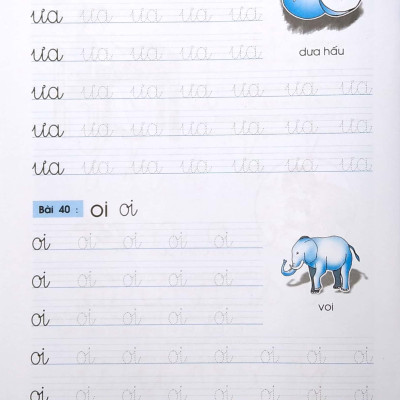 ưa ưa ưa ưa ưa
ưa ưa ưa ưa ưa
dưa hấu
ưa ưa ưa ưa ưa ưa ưa ưa
ưa ưa ưa ưa ưa ưa ưa ưa
ưa ưa ưa ưa ưa ưa ưa ưa
Bài 40 : oi oi
oi oi oi oi oi
oi oi oi oi oi
oi oi oi oi oi
voi
oi oi oi oi oi oi oi oi
oi oi oi oi oi oi oi oi